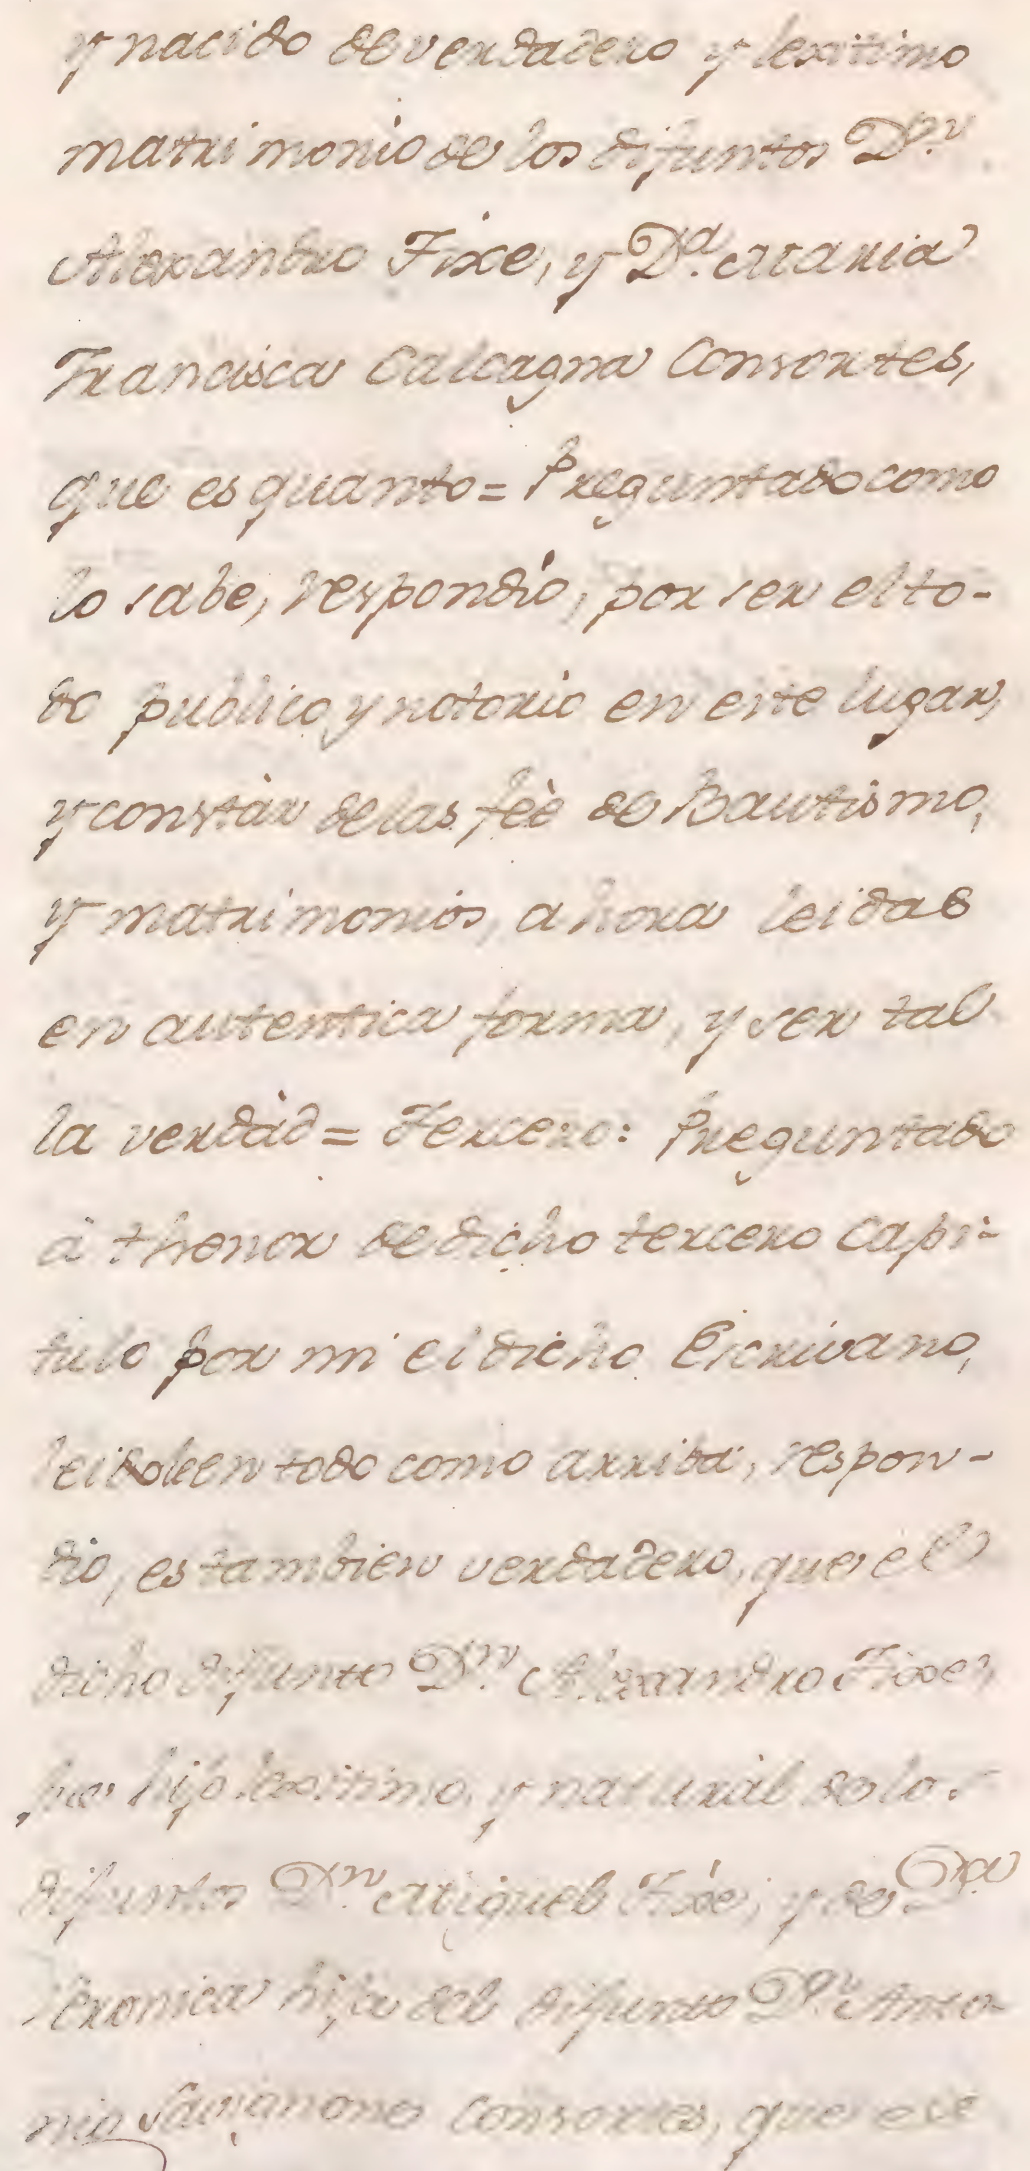 y nacido de verdadero y lexitimo
matrimonio de los difuntos D.n
Alexandro Fixe, y D.a Maria
Francisca Calcagna Consortes,
que es quanto = Preguntado como
lo sabe, respondió, por ser el to-
do publico y notorio en este lugar,
y constàr de las feè de Bautismo,
y matrimonios, ahora leidas
en autentica forma, y ser tal
la verdàd = Tercero: Preguntado
à thenor de dicho tercero Capi-
tulo por mi el dicho Escrivano,
leidole en todo como arriba, respon-
dio, es tambien verdadero, que el
dicho difunto D.n Alexandro Fixe,
fue hijo lexitimo, y naturàl de los
difuntos D.n Miguel Fixe, y de D.a
hija del difunto D.n Anto-
nio Consortes, que